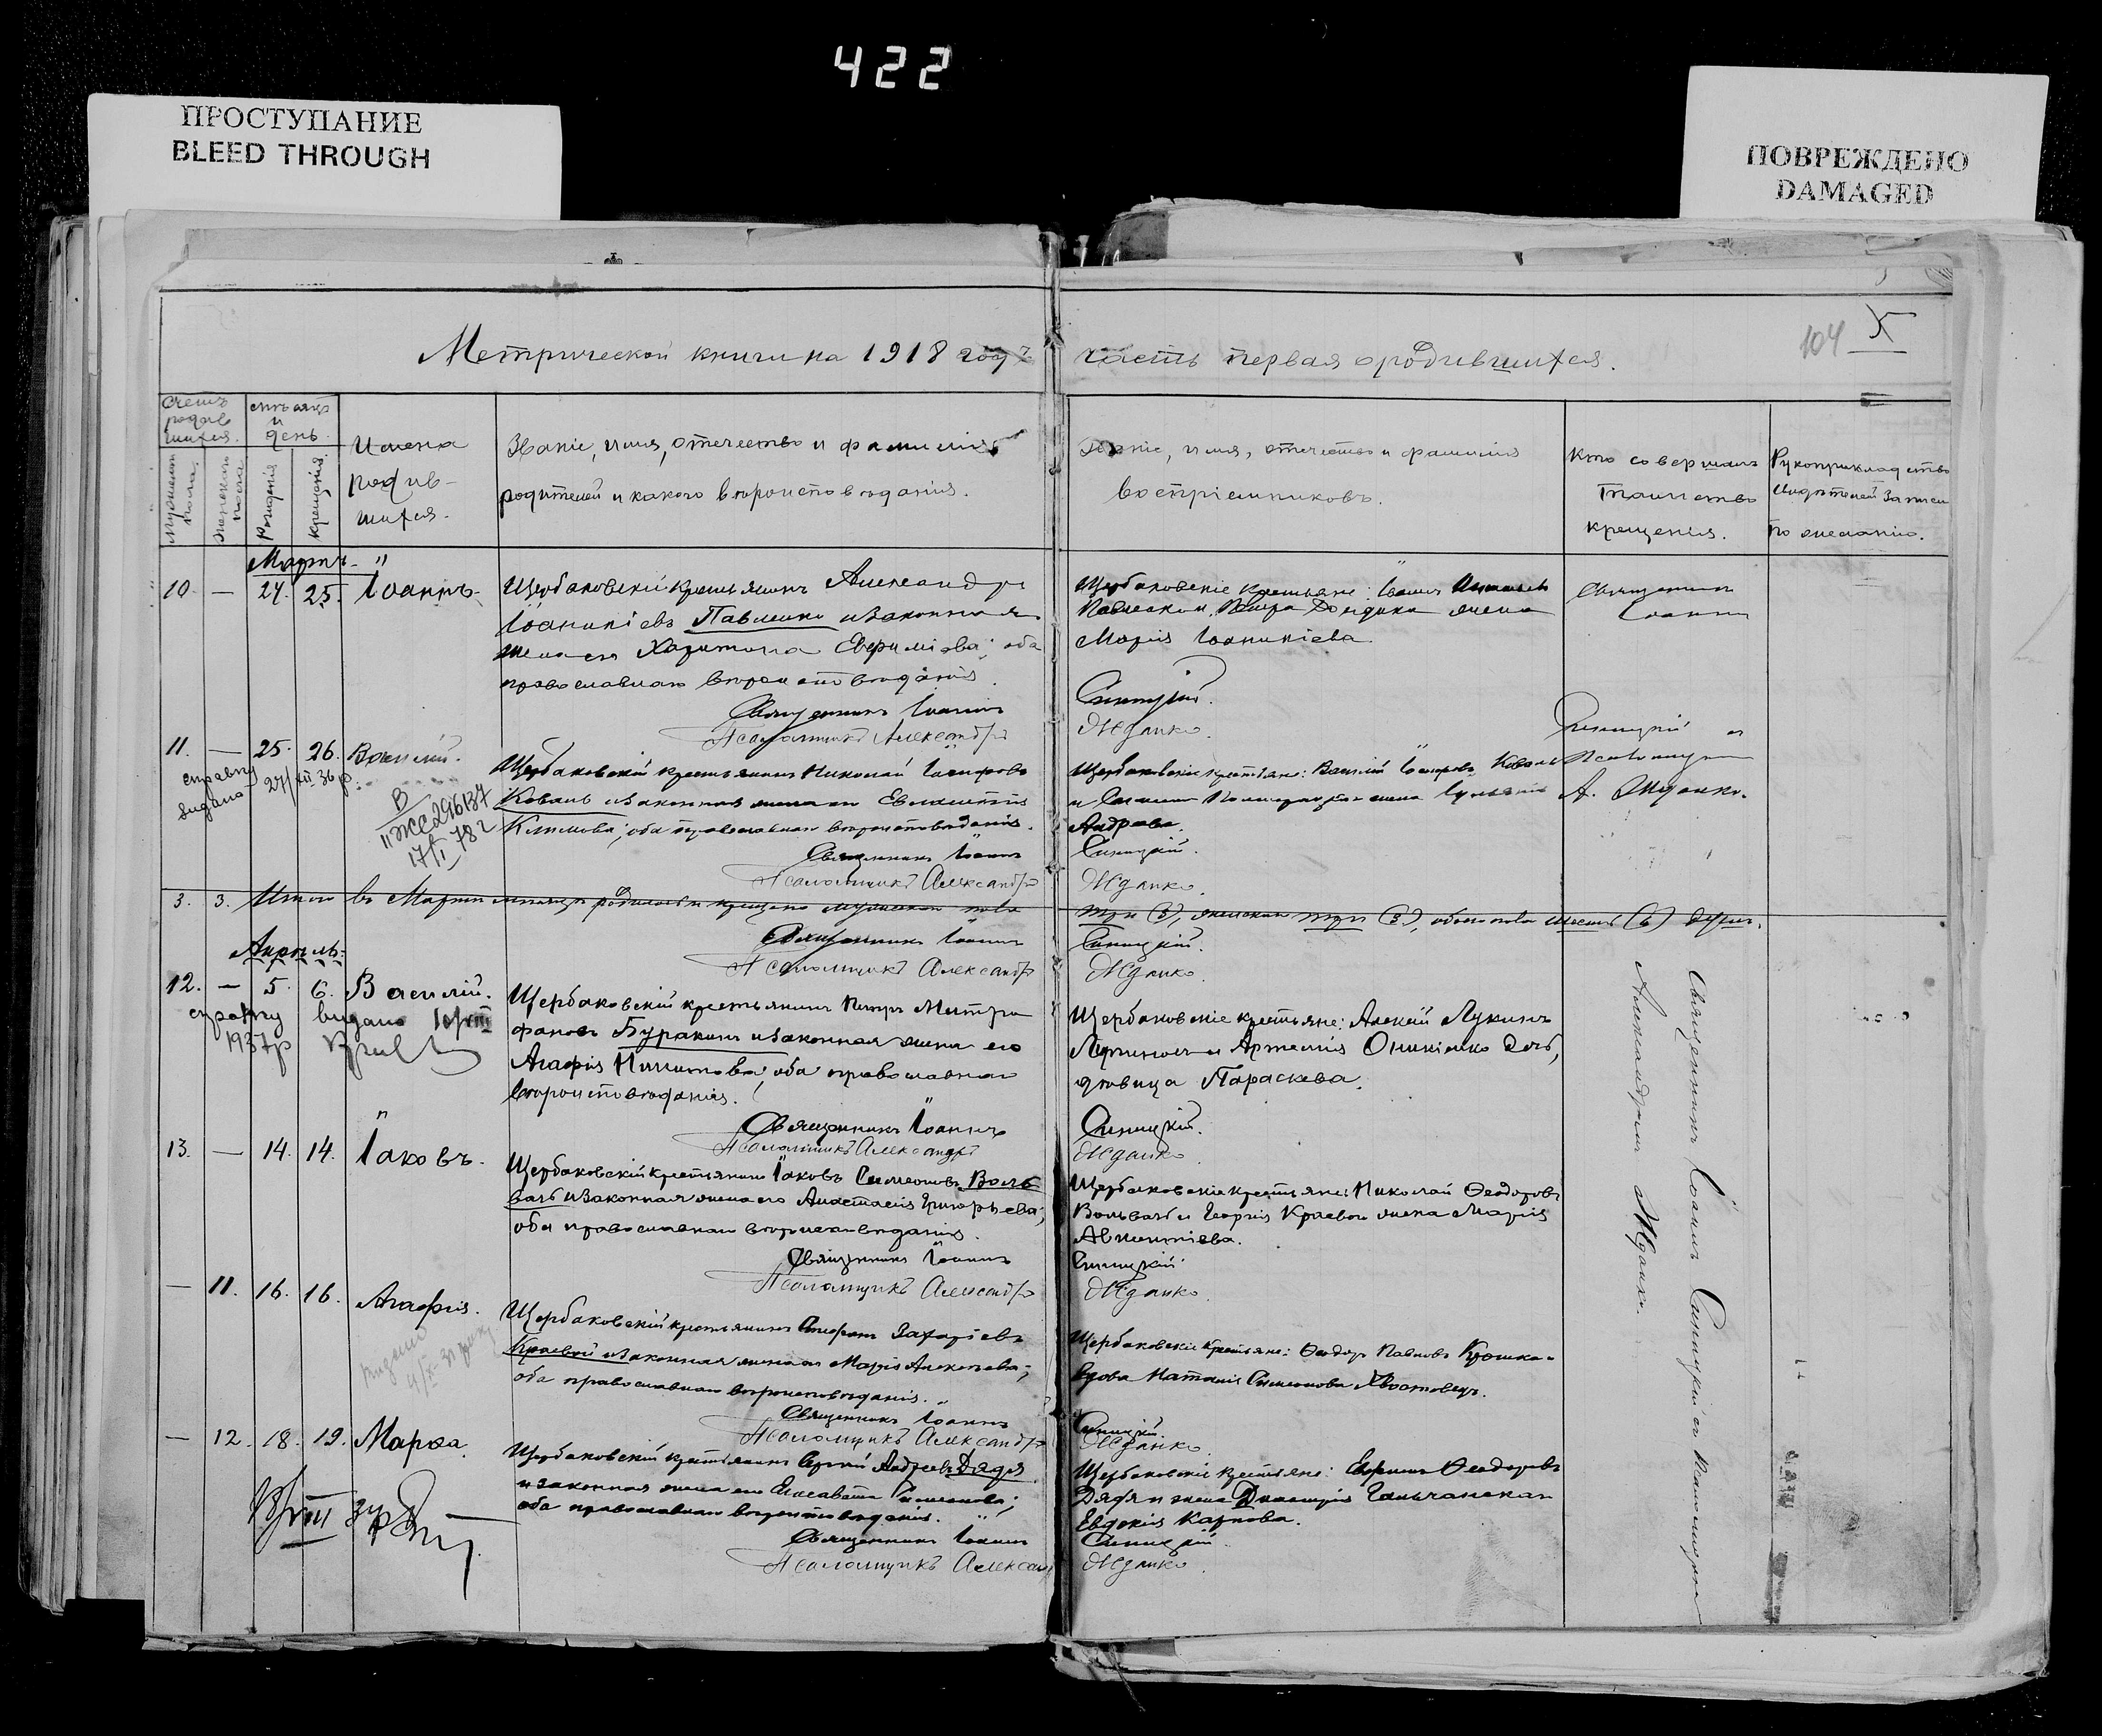 422
ПРОСТУПАНИЕ
BLEED THROUGH
ПОВРЕЖДЕНО
DAMAGED
104
Метрической книги на 1918 годъ
часть первая о родившихся.
Счетъ родившихся.
Мужескаго пола.
Женскаго пола.
мѣсяцъ и день.
Рожденія
Крещенія.
Имена
родив-
шихся.
Званіе, имя, отечество и фамилія
родителей и какого вѣроисповѣданія.
Званіе, имя, отечество и фамилія
воспріемниковъ.
Кто совершалъ
таинство
крещенія.
Рукоприкладство
свидѣтелей записи
по желанію.
Мартъ
10 — 24. 25. Іоаннъ.
Щербаковскій крестьянинъ Александръ
Іоанникіевъ Павленко и законная
жена его Харитина Евѳиміева; оба
православнаго вѣроисповѣданія.
Священникъ Іоаннъ
Псаломщикъ Александръ
Щербаковскіе крестьяне: Іоаннъ
Павленко и жена
Марія Іоанникіева.
Синицкій.
Жданко.
Священникъ
Іоаннъ
Синицкій и
Псаломщикъ
А. Жданко.
11. — 25. 26. Василій.
справку
видано 27/XII 36 р.
В
II ЖС 296137
17/I 78 г
Щербаковскій крестьянинъ Николай Іосифовъ
Коваль и законная жена его
Климова; оба православнаго вѣроисповѣданія.
Священникъ Іоаннъ
Псаломщикъ Александръ
Щербаковскіе крестьяне: Василій Іосифовъ Коваль
и жена
Андреева.
Синицкій.
Жданко.
3. 3. Итого въ Мартѣ мѣсяцѣ родилось и крещено мужеска пола
три (3), женска три (3), обоего пола шесть (6) душъ.
Священникъ Іоаннъ
Псаломщикъ Александръ
Синицкій.
Жданко
Апрѣль.
12. — 5. 6. Василій.
справку видано 10/VIII
1937 р
Щербаковскій крестьянинъ Петръ Митро
фановъ Буракинъ и законная жена его
Агафія Никитова; оба православнаго
вѣроисповѣданія.
Священникъ Іоаннъ
Псаломщикъ Александръ
Щербаковскіе крестьяне: Алексій Лукинъ
и Артемія Оникіенко дочь,
дѣвица Параскева.
Синицкій.
Жданко
13. — 14. 14. Іаковъ.
Щербаковскій крестьянинъ Іаковъ Симеоновъ Воль
вачъ и законная жена его Анастасія Григорьева;
оба православнаго вѣроисповѣданія.
Священникъ Іоаннъ
Псаломщикъ Александръ
Щербаковскіе крестьяне: Николай Ѳеодоровъ
Вольвачъ и Георгія Краевого жена Марія
Авксентіева.
Синицкій
Жданко.
— 11. 16. 16. Агафія.
Щербаковскій крестьянинъ Стефанъ Захаріевъ
Краевой и законная жена его Марія Алексѣева;
оба православнаго вѣроисповѣданія.
Священникъ Іоаннъ
Псаломщикъ Александръ
Щербаковскіе крестьяне: Ѳеодоръ Павловъ
вдова Наталія Симеонова
Синицкій.
Жданко.
— 12. 18. 19. Марѳа.
Щербаковскій крестьянинъ Сергій Андреевъ Дядя
и законная жена его Елисавета Симеонова;
оба православнаго вѣроисповѣданія.
Священникъ Іоаннъ
Псаломщикъ Александръ
Щербаковскіе крестьяне: Ѳеодоровъ
Дядя и жена Димитрія Гальчанская
Евдокія Карпова.
Синицкій.
Жданко
Священникъ Іоаннъ Синицкій съ Псаломщикомъ
Александромъ Жданко.